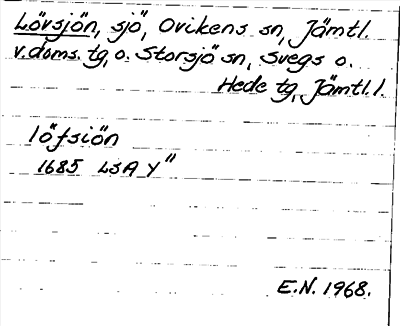 Lövsjön, sjö, Ovikens sn, Jämtl.
v. doms. tg, o. Storsjö sn, Svegs o.
Hede tg, Jämtl. l.
löfsiön
1685 LSA Y"
E.N. 1968.